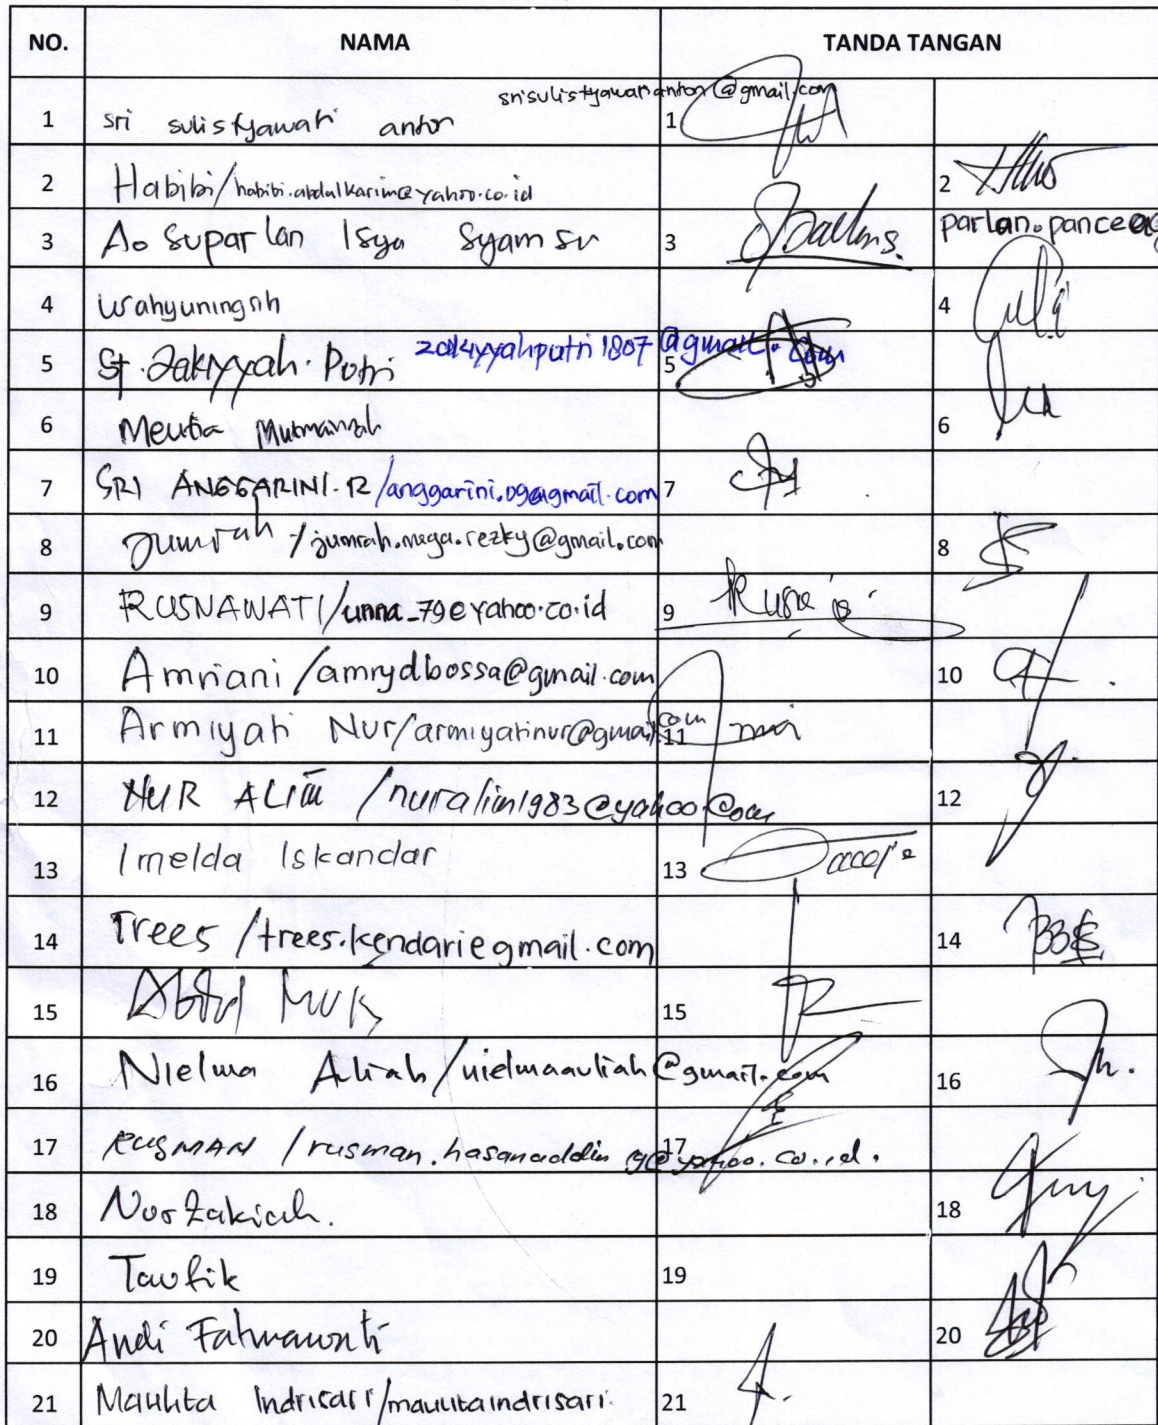 NO. NAMA TANDA TANGAN
1 sri sulistyawati anton srisulistyawatianton@gmail.com 1
2 Habibi/habibi.abdulkarim@yahoo.co.id 2
3 A. Suparlan Isya Syamsu 3 parlan.pancee@
4 Wahyuningsih 4
5 St. Zakiyyah. Putri zakiyyahputri1807@gmail.com 5
6 Meutia Mutmainnah 6
7 SRI ANGGARINI.R/anggarini.09@gmail.com 7
8 Jumrah /jumrah.mega.rezky@gmail.com 8
9 RUSNAWATI/unna_79@yahoo.co.id 9
10 Amriani/amrydbossa@gmail.com 10
11 Armiyati Nur/armiyatinur@gmail.com 11
12 NUR ALIM /nuralim1983@yahoo.com 12
13 Imelda Iskandar 13
14 Trees/trees.kendari@gmail.com 14
15 15
16 Nielma Auliah/nielmaauliah@gmail.com 16
17 RUSMAN /rusman.hasanuddin 9@yahoo.co.id. 17
18 Nur Zakiah. 18
19 Taufik 19
20 Andi Fatmawati 20
21 Maulita Indrisari/maulitaindrisari. 21